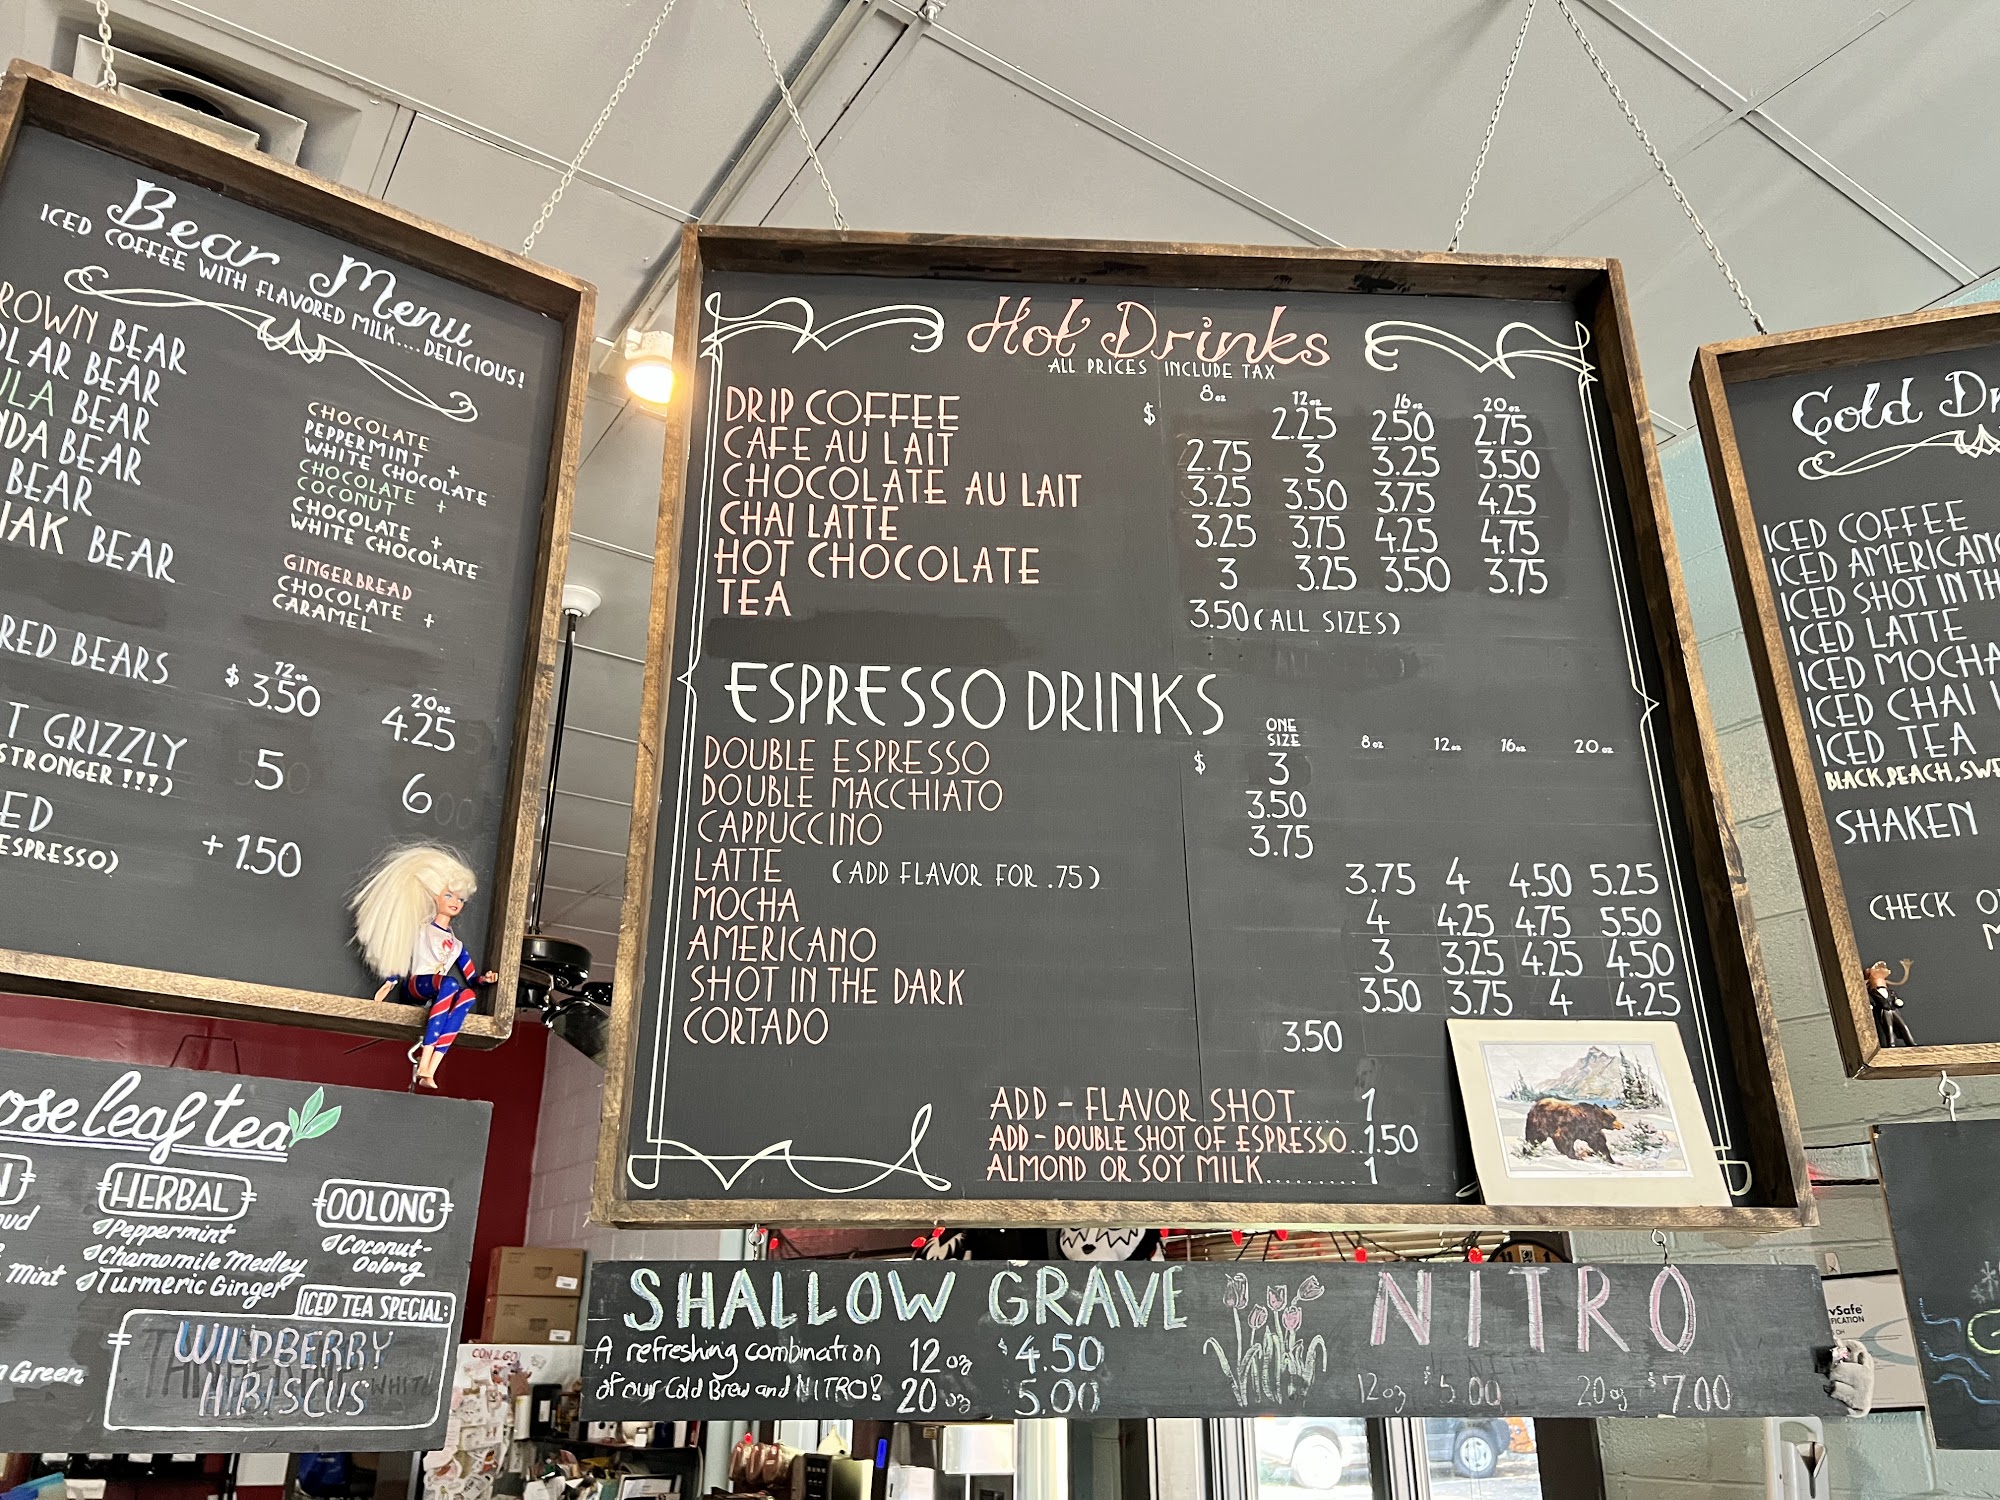 Bear Menu
ICED COFFEE WITH FLAVORED MILK....DELICIOUS!
BEAR
BEAR
BEAR
BEAR
BEAR
BEAR
CHOCOLATE
PEPPERMINT +
WHITE CHOCOLATE
CHOCOLATE +
COCONUT
CHOCOLATE +
WHITE CHOCOLATE
GINGERBREAD
CHOCOLATE +
CARAMEL
BEARS $ 12oz 3.50 20oz 4.25
GRIZZLY 5 6
STRONGER!!!)
+ 1.50
ESPRESSO)
Hot Drinks
ALL PRICES INCLUDE TAX
8oz 12oz 16oz 20oz
DRIP COFFEE $ 2.25 2.50 2.75
CAFE AU LAIT 2.75 3 3.25 3.50
CHOCOLATE AU LAIT 3.25 3.50 3.75 4.25
CHAI LATTE 3.25 3.75 4.25 4.75
HOT CHOCOLATE 3 3.25 3.50 3.75
TEA 3.50 (ALL SIZES)
ESPRESSO DRINKS
ONE SIZE 8oz 12oz 16oz 20oz
DOUBLE ESPRESSO $ 3
DOUBLE MACCHIATO 3.50
CAPPUCCINO 3.75
LATTE (ADD FLAVOR FOR .75) 3.75 4 4.50 5.25
MOCHA 4 4.25 4.75 5.50
AMERICANO 3 3.25 4.25 4.50
SHOT IN THE DARK 3.50 3.75 4 4.25
CORTADO 3.50
ADD - FLAVOR SHOT..... 1
ADD - DOUBLE SHOT OF ESPRESSO..1.50
ALMOND OR SOY MILK......... 1
Cold
ICED COFFEE
ICED AMERICANO
ICED SHOT IN TH
ICED LATTE
ICED MOCHA
ICED CHAI
ICED TEA
BLACK, PEACH, SWE
SHAKEN
CHECK
leaf tea
HERBAL
Peppermint
Chamomile Medley
Turmeric Ginger
OOLONG
Coconut-
Oolong
Mint
Green
ICED TEA SPECIAL:
WILDBERRY
HIBISCUS
SHALLOW GRAVE
A refreshing combination 12oz $4.50
of our Cold Brew and NITRO! 20oz 5.00
NITRO
12oz $5.00 20oz $7.00